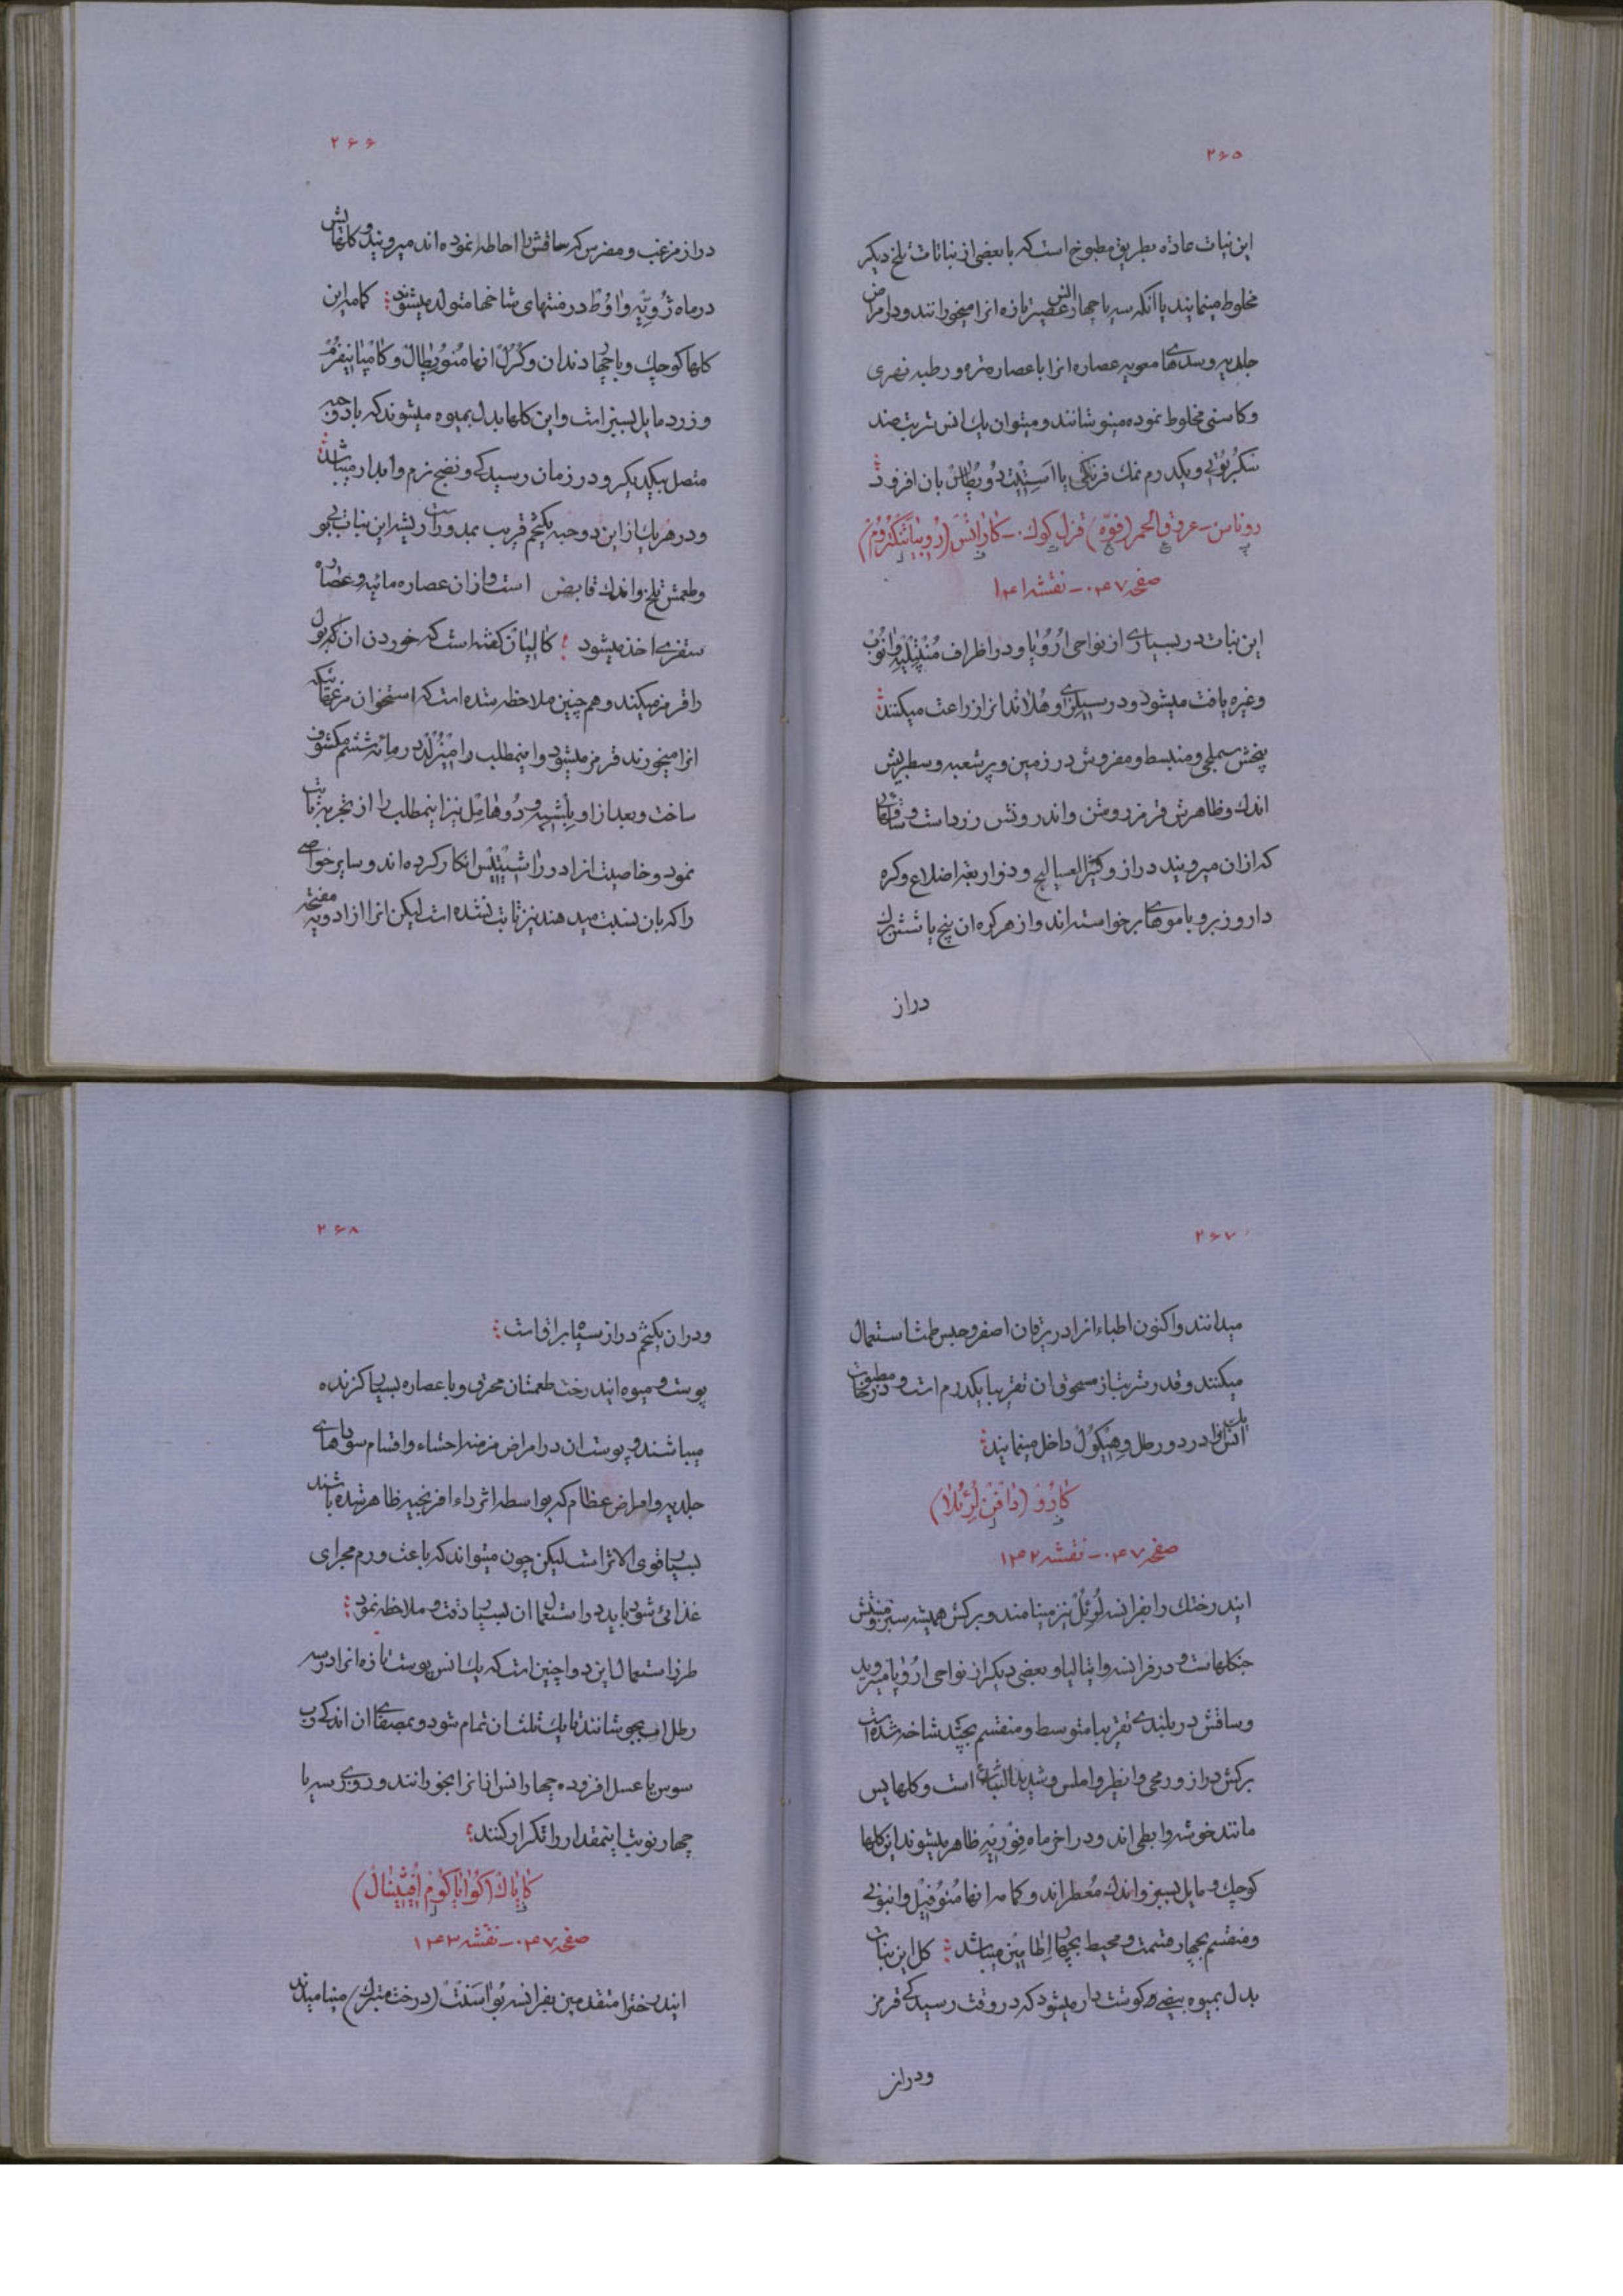 ۲۶۵
این نبات عادة بطریق مطبوخ است که با بعضی از نباتات تلخ دیکر
مخلوط مینمایند یا آنکه سه یا چهار انس عصیر تازه انرا میخورانند و در امراض
جلدیه و سده‌های معویه عصاره انرا با عصاره تره و رطبه نهری
و کاسنی مخلوط نموده مینوشانند و میتوان یک انس شربت صد
و یکدرم نمک فرنکی یا استیت دو پطاس بان افزود
روناس - عروق الحمر (فوّه) قزل کوک - کارانْسْ (رُوبیاتَنکتُروُم)
صفحه ۰۴۷ - نقشه ۱۴۱
این نبات در بسیاری از نواحی اُرُوپا و در اطراف مُنْتپِلیه وانوُبْ
و غیره یافت میشود و در سیلزی و هُلاند انرا زراعت میکنند
بیخش سهلجی و منبسط و مفروش در زمین و پرشعبه و سطبریش
اندک و ظاهرش قرمز روشن و اندرونش زرد است و ساقهای
که از ان میرویند دراز و کثیر العسالیج و ذو اربعة اضلاع و کره
دار و زبر و با موهای برخواسته‌اند و از هر کره ان پنج یا شش برک
دراز
۲۶۶
دراز مزغب و مضرس که ساقش را احاطه نموده‌اند میرویند و کلهایش
در ماه ژُویّیِه و اوُطْ در منتهای شاخها متولد میشوند کمامه این
کلها کوچک و با چهار دندان و کُرُلْ انها مُنوُپِطالْ و کامْپانیفُرْمْ
و زرد مایل بسبز است و این کلها بدل بمیوه میشوند که با دو حبه
متصل بیکدیکر و در زمان رسیدکی و نضج نرم و ابدار میباشد
و در هر یک از این دو حبه یکتخم قریب بمدور است ریشه این نبات بی بو
و طعمش تلخ و اندک قابض است و از ان عصاره مائیه و عصاره
سقزی اخذ میشود کالیانْ کفته است که خوردن ان که بول
را قرمز میکند و هم چنین ملاحظه شده است که استخوان مرغهائیکه
انرا میخورند قرمز میشود و اینمطلب را میْزُلْد در مائه ششم مکشوف
ساخت و بعد از او بِلْشیِه و دُوهامِل نیز اینمطلب را از تجربه ثابت
نمود و خاصیت انرا در راشیتیس انکار کرده‌اند و سایر خواصی
را که بان نسبت میدهند نیز ثابت نشده است لیکن انرا از ادویه مفتحه
۲۶۷
میدانند و اکنون اطباء انرا در یرقان اصفر و حبس طمث استعمال
میکنند و قدر شربت از مسحوق ان تقریبا یکدرم است و در مطبوخات
یک انس انرا در دو رطل وهیکوُلْ داخل مینمایند
کارُو (دافْنْ لُرِئُلا)
صفحه ۰۴۷ - نقشه ۱۴۲
ایندرختک را بفرانسه لُرِئُلْ نیز مینامند و برکش همیشه سبز و منبتش
جنکلهاست و در فرانسه و ایتالیا و بعضی دیکر از نواحی اُرُوپا میروید
و ساقش در بلندی تقریبا متوسط و منقسم بچند شاخه شده است
برکش دراز و رمحی و انظر و املس و شدید النبات است و کلهایش
مانند خوشه و ابطی اند و در اخر ماه فِوْرِیِه ظاهر میشوند این کلها
کوچک و مایل بسبز و اندک مُعطراند و کمامه انها مُنوُفیِل و انبوبی
و منقسم بچهار قسمت و محیط بچهار اِطامینْ میباشد کل این نبات
بدل بمیوه بیضی و کوشت دار میشود که در وقت رسیدکی قرمز
و دراز
۲۶۸
و در ان یکتخم دراز سیاه براق است
پوست و میوه ایندرخت طعمشان محرق و با عصاره بسیار کزنده
میباشند و پوست ان در امراض مزمنه احشاء و اقسام سوداهای
جلدیه و امراض عظام که بواسطه اثر داء افرنجیه ظاهر شده باشند
بسیار قوی الاثر است لیکن چون میتواند که باعث ورم مجرای
غذائی شود باید در استعمال ان بسیار دقت و ملاحظه نمود
طرز استعمال این دوا چنین است که یک انس پوست تازه انرا در سه
رطل اب بجوشانند تا یک ثلث ان تمام شود و بمصفای ان اندکی رب
سوس یا عسل افزوده چهار انس از انرا بخورانند و روزی سه یا
چهار نوبت اینمقدار را تکرار کنند
کایاک (کُوایاکوُم اُفیّسِنالْ)
صفحه ۰۴۷ - نقشه ۱۴۳
ایندرخترا متقدمین بفرانسه بُوْاسَنْتْ (درخت متبرک) مینامیدند